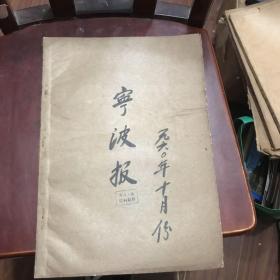 宁波报
一九六〇年十月份